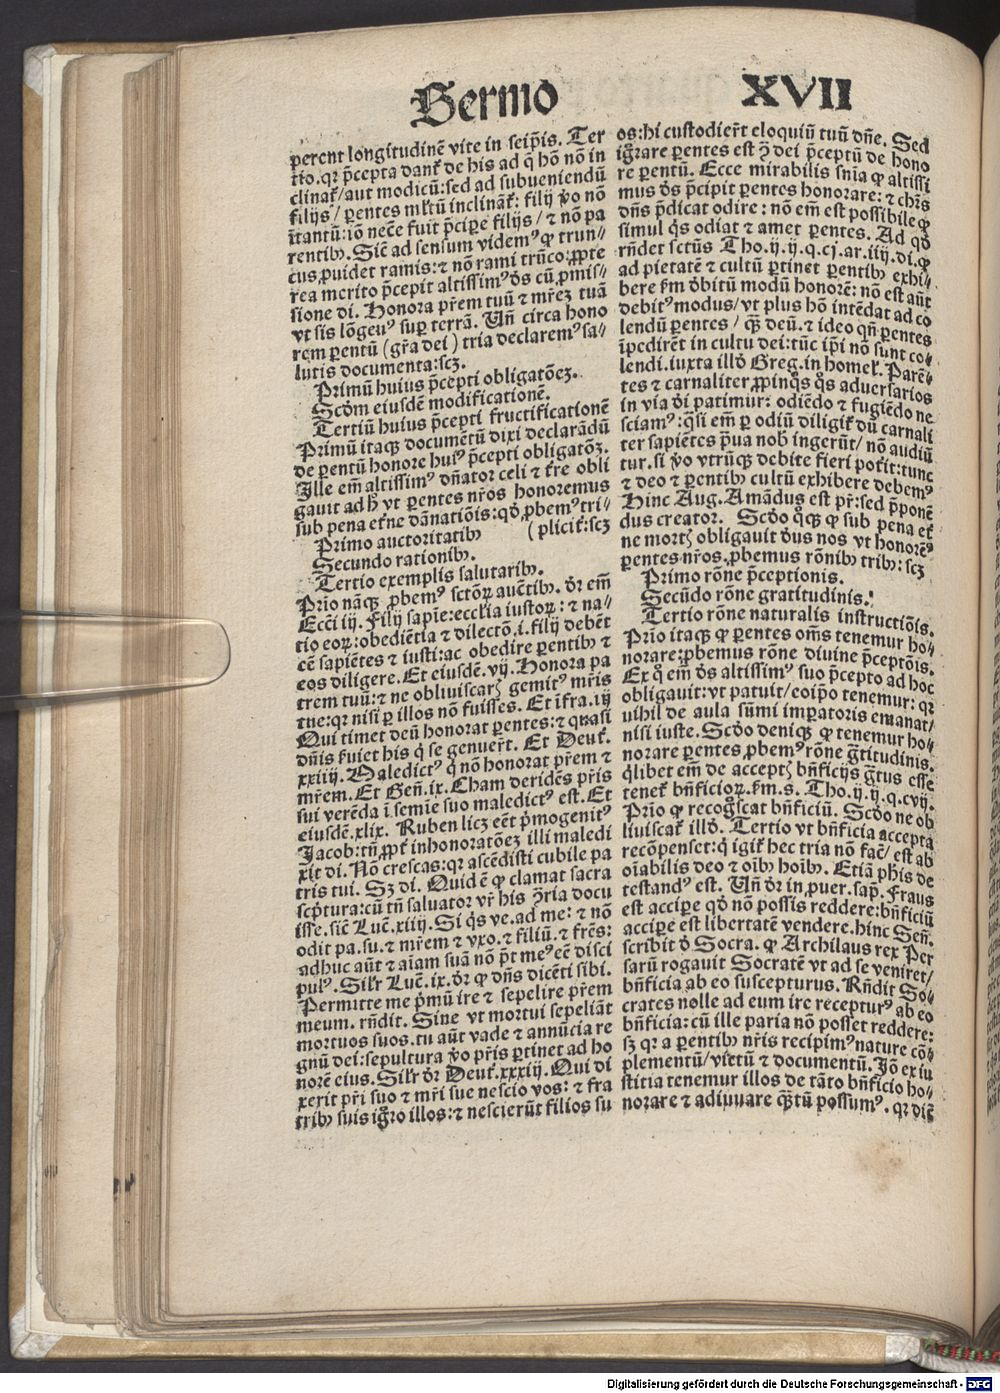 Sermo XVII
perent longitudinē vite in seip̄is. Ter
tio. qr p̄cepta dant᷑ de his ad q̄ hō nō in
clinat᷑/aut modicū: sed ad subueniendū
filijs/ parentes ml̄tū inclinant᷑: filij ꝟo nō
tantū: iō necē fuit p̄cipe filijs/ ⁊ nō pa
rentibꝫ. Sic̄ ad sensum videmꝰ ꝙ trun⸗
cus ꝓuidet ramis: ⁊ nō rami trūco: ꝓpte
rea merito p̄cepit altissimꝰ d̄s cū ꝓmis⸗
sione di. Honora pr̄em tuū ⁊ mr̄eꝫ tuā
vt sis lōgeuꝰ suꝑ terrā. Un̄ circa hono
rem ꝑentū (gr̄a dei) tria declaremꝰ sa⸗
lutis documenta: scꝫ.
Primū huius p̄cepti obligatōeꝫ.
Scd̄m eiusdē modificationē.
Tertiū huius p̄cepti fructificationē
Primū itaqꝫ documētū dixi declarādū
de ꝑentū honore huiꝰ p̄cepti obligatōꝫ.
Ille em̄ altissimꝰ dn̄ator celi ⁊ t̄re obli
gauit ad h̄ vt ꝑentes nr̄os honoremus
sub pena et̄ne dānatiōis: qd̄ ꝓbemꝰ tri⸗
Primo auctoritatibꝫ (plicit᷑: scꝫ
Secundo rationibꝫ.
Tertio exemplis salutaribꝫ.
Prīo nāqꝫ ꝓbemꝰ sctōꝝ auc̄tibꝫ. dr̄ em̄
Ecc̄i iij. Filij sapīe: ecclīa iustoꝝ: ⁊ na⸗
tio eoꝝ: obediētia ⁊ dilectō. i. filij debēt
eē sapiētes ⁊ iusti: ac obedire ꝑentibꝫ ⁊
eos diligere. Et eiusdē. vij. Honora pa
trem tuū: ⁊ ne obliuiscarꝭ gemitꝰ mr̄is
tue: qr nisi ꝑ illos nō fuisses. Et īfra. iij
Qui timet deū honorat ꝑentes: ⁊ quasi
dn̄is ẜuiet his q̇ se genuer̄t. Et Deut᷑.
xxiiij. Maledictꝰ q̇ nō honorat pr̄em ⁊
mr̄em. Et Gen̄. ix. Cham deridēs pr̄is
sui verēda ī semīe suo maledictꝰ est. Et
eiusdē. xlix. Ruben licꝫ eēt p̄mogenitꝰ
Jacob: tn̄ ꝓpt᷑ inhonoratōeꝫ illi maledi
xit di. Nō crescas: qr ascēdisti cubile pa
tris tui. Sꝫ di. Quid ē ꝙ clamat sacra
scp̄tura: cū tn̄ saluator vr̄ his ꝯ̄ria docu
isse. sic̄ Luc̄. xiiij. Si q̇s ve. ad me: ⁊ nō
odit pa. su. ⁊ mr̄em ⁊ vxo. ⁊ filiū. ⁊ fr̄es:
adhuc aūt ⁊ aīam suā nō p̄t meꝰ eē disci
pulꝰ. Sil̄r Luc̄. ix. dr̄ ꝙ dn̄s dicēti sibi.
Permitte me p̄mū ire ⁊ sepelire pr̄em
meum. rn̄dit. Sine vt mortui sepeliāt
mortuos suos. tu aūt vade ⁊ annūcia re
gnū dei: sepultura ꝟo pr̄is ꝑtinet ad ho
norē eius. Sil̄r dr̄ Deut᷑. xxxiij. Qui di
xerit pr̄i suo ⁊ mr̄i sue nescio vos: ⁊ fra
tribꝫ suis igr̄o illos: ⁊ nescierūt filios su
os: hi custodier̄t eloquiū tuū dn̄e. Sed
igr̄are ꝑentes est ꝯ̄ dei p̄ceptū de hono
re ꝑentū. Ecce mirabilis sn̄ia ꝙ altissi
mus d̄s p̄cipit ꝑentes honorare: ⁊ chr̄s
dn̄s p̄dicat odire: nō em̄ est possibile ꝙ
simul q̇s odiat ⁊ amet ꝑentes. Ad qd̄
rn̄det sctūs Tho. ij. ij. q. cj. ar. iiij. di. ꝙ
ad pietatē ⁊ cultū ꝑtinet ꝑentibꝫ exhi⸗
bere ẜm d̄bitū modū honorē: nō est aūt
debitꝰ modus/ vt plus hō intēdat ad co
lendū ꝑentes/ qꝫ̄ deū. ⁊ ideo qn̄ ꝑentes
īpedirēt in cultu dei: tūc ip̄i nō sunt co⸗
lendi. iuxta illd̄ Greg. in homel᷑. Parē⸗
tes ⁊ carnaliter ꝓpinq̄s q̄s aduersarios
in via dei patimur: odiēdo ⁊ fugiēdo ne
sciamꝰ: q̄si em̄ ꝑ odiū diligit᷑ dū carnali
ter sapiētes p̄ua nob᷑ ingerūt/ nō audiū
tur. si ꝟo vtrūqꝫ debite fieri pot̄it: tunc
⁊ deo ⁊ ꝑentibꝫ cultū exhibere debemꝰ
Hinc Aug. Amādus est pr̄: sed p̄ponē
dus creator. Scd̄o q̄qꝫ ꝙ sub pena et᷑
ne mortꝭ obligauit d̄us nos vt honorēꝰ
ꝑentes nr̄os. ꝓbemus rōnibꝫ tribꝫ: scꝫ
Primo rōne p̄ceptionis.
Secūdo rōne gratitudinis.
Tertio rōne naturalis instructiōis.
Prīo itaqꝫ ꝙ ꝑentes om̄s tenemur ho⸗
norare: ꝓbemus rōne diuine p̄ceptōis.
Ex q̊ em̄ d̄s altissimꝰ suo p̄cepto ad hoc
obligauit: vt patuit/ eoip̄o tenemur: qr
nihil de aula sūmi imꝑatoris emanat/
nisi iuste. Scd̄o deniqꝫ ꝙ tenemur ho⸗
norare ꝑentes ꝓbemꝰ rōne gr̄titudinis.
q̄libet em̄ de acceptꝭ bn̄ficijs gr̄tus esse
tenet᷑ bn̄ficioꝝ. ẜm. s. Tho. ij. ij. q. cvij.
Prīo ꝙ recogscat bn̄ficiū. Scd̄o ne ob
liuiscat᷑ illd̄. Tertio vt bn̄ficia accepta
recōpenset: q̇ igit᷑ hec tria nō fac̄/ est ab
oīabilis deo ⁊ oībꝫ hoībꝫ. Etiā ph̄is de
testandꝰ est. Un̄ dr̄ in ꝓuer. sap̄. Fraus
est accipe qd̄ nō possis reddere: bn̄ficiū
accipe est libertatē vendere. hinc Sen̄.
scribit d̄ Socra. ꝙ Archilaus rex Per
sarū rogauit Socratē vt ad se veniret/
bn̄ficia ab eo suscepturus. Rn̄dit So⸗
crates nolle ad eum ire recepturꝰ ab eo
bn̄ficia: cū ille paria nō posset reddere:
sꝫ qr a ꝑentibꝫ nr̄is recipimꝰ nature cō⸗
plementū/ victū ⁊ documentū. Jō ex iu
stitia tenemur illos de tāto bn̄ficio ho⸗
norare ⁊ adiuuare qꝫ̄tū possumꝰ. qr dic̄
Digitalisierung gefördert durch die Deutsche Forschungsgemeinschaft - DFG